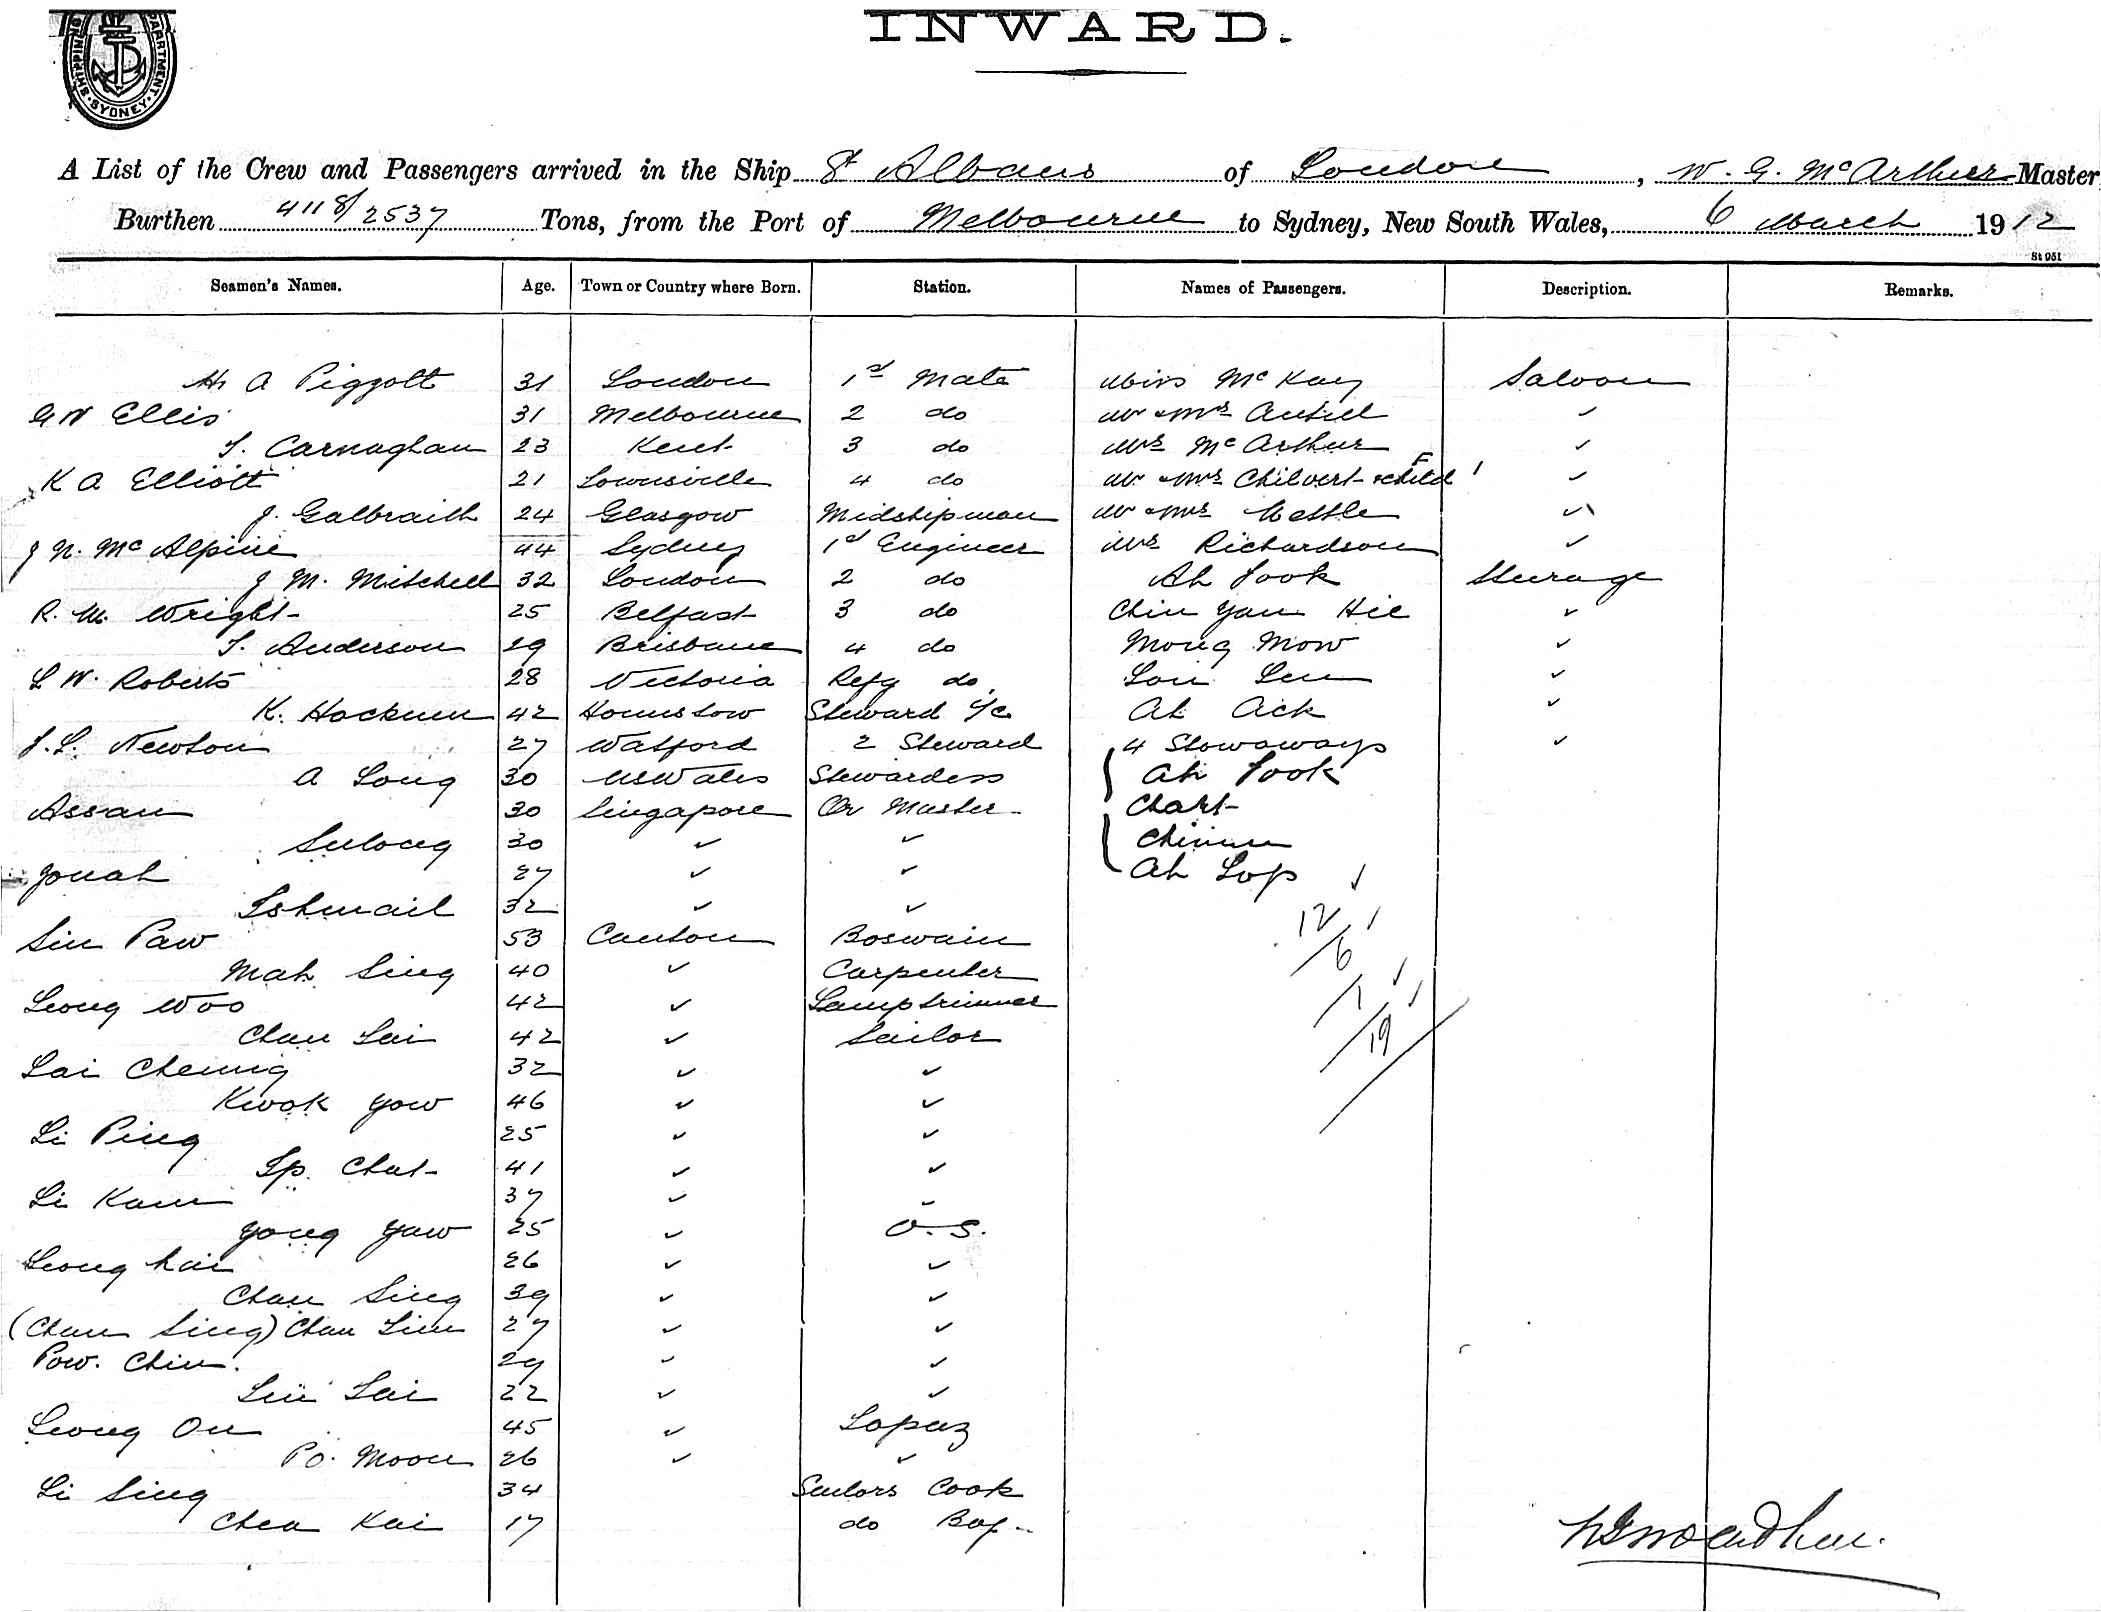 INWARD.
SHIPPING DEPARTMENT. SYDNEY.
A List of the Crew and Passengers arrived in the Ship St Albans of London, W. G. McArthur Master
Burthen 4118/2537 Tons, from the Port of Melbourne to Sydney, New South Wales, 6 March 1912
St 951
Seamen's Names. Age. Town or Country where Born. Station. Names of Passengers. Description. Remarks.
H A Piggott 31 London 1st Mate Miss McKay Saloon
G W Ellis 31 Melbourne 2 do Mr & Mrs Antill ✓
T. Carnaghan 23 Kent 3 do Mrs McArthur ✓
K A Elliott 21 Townsville 4 do Mr & Mrs Chilvert & child F 1 ✓
J. Galbraith 24 Glasgow Midshipman Mr & Mrs Kettle ✓
J N. McAlpine 44 Sydney 1st Engineer Mrs Richardson ✓
J M. Mitchell 32 London 2 do Ah Fook Steerage
R. M. Wright 25 Belfast 3 do Chin Yan Hie ✓
T. Anderson 29 Brisbane 4 do Mong Mow ✓
L W. Roberts 28 Victoria Refg do. Lou Len ✓
K. Hocknen 42 Hounslow Steward i/c Ah Ack ✓
J. L. Newton 27 Watford 2 Steward 4 Stowaways ✓
A Long 30 NSWales Stewardess Ah Fook
Assan 30 Singapore Qr Master Chart
Sulong 30 ✓ ✓ Chinun
Jonah 27 ✓ ✓ Ah Lop ✓
Ishmail 32 ✓ ✓ 12 /
Sin Paw 53 Canton Boswain 6
Mah Sing 40 ✓ Carpenter ✓
Leong Woo 42 ✓ Lamptrimmer 1 ✓
Chan Lai 42 ✓ Sailor 19
Lai Cheung 32 ✓ ✓
Kwok Yow 46 ✓ ✓
Li Ping 25 ✓ ✓
Ip Chat 41 ✓ ✓
Li Kam 37 ✓ ✓
Yong Yaw 25 ✓ O.S.
Leong Kai 26 ✓ ✓
Chan Sing 39 ✓ ✓
(Chan Sing) Chan Lim 27 ✓ ✓
Pow. Chin. 29 ✓ ✓
Lin Lai 22 ✓ ✓
Leong On 45 ✓ Topaz
Po. Moon 26 ✓ ✓
Li Sing 34 Sailors Cook
Chea Kai 17 do Boy